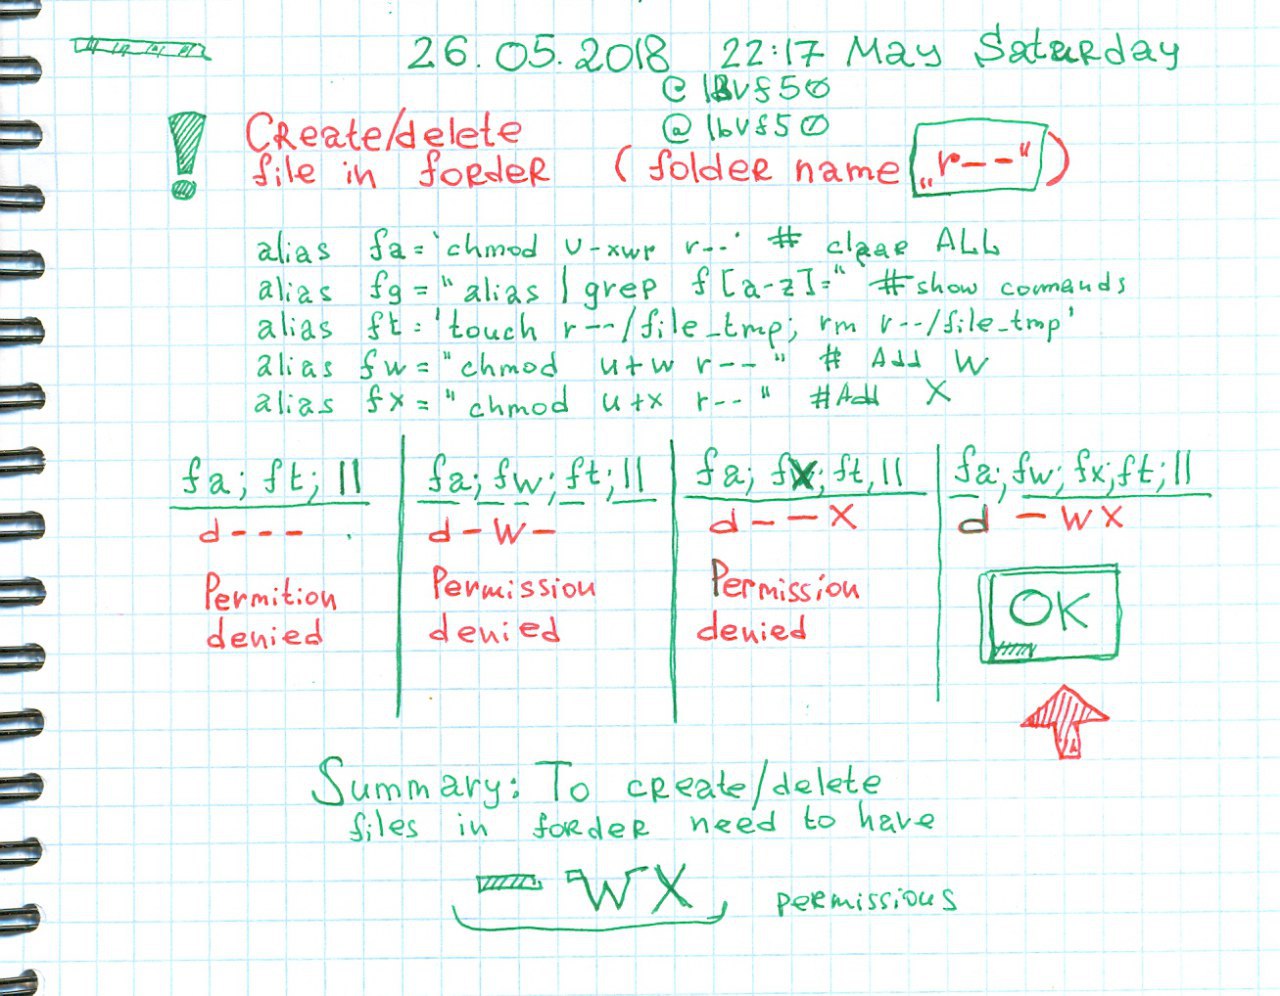 26.05.2018 22:17 May Saturday
@ lbvf50
@ lbvf50
! Create/delete
file in forder ( folder name „r--“ )
alias fa='chmod u-xwr r--' # claae ALL
alias fg="alias | grep f[a-z]=" # show comands
alias ft='touch r--/file_tmp; rm r--/file_tmp'
alias fw="chmod u+w r--" # Add W
alias fx="chmod u+x r--" #Add X
fa; ft; ll
d---
Permition
denied
fa; fw; ft; ll
d-W-
Permission
denied
fa; fx; ft, ll
d--X
Permission
denied
fa; fw; fx; ft; ll
d -WX
OK
Summary: To create/delete
files in forder need to have
- WX permissious